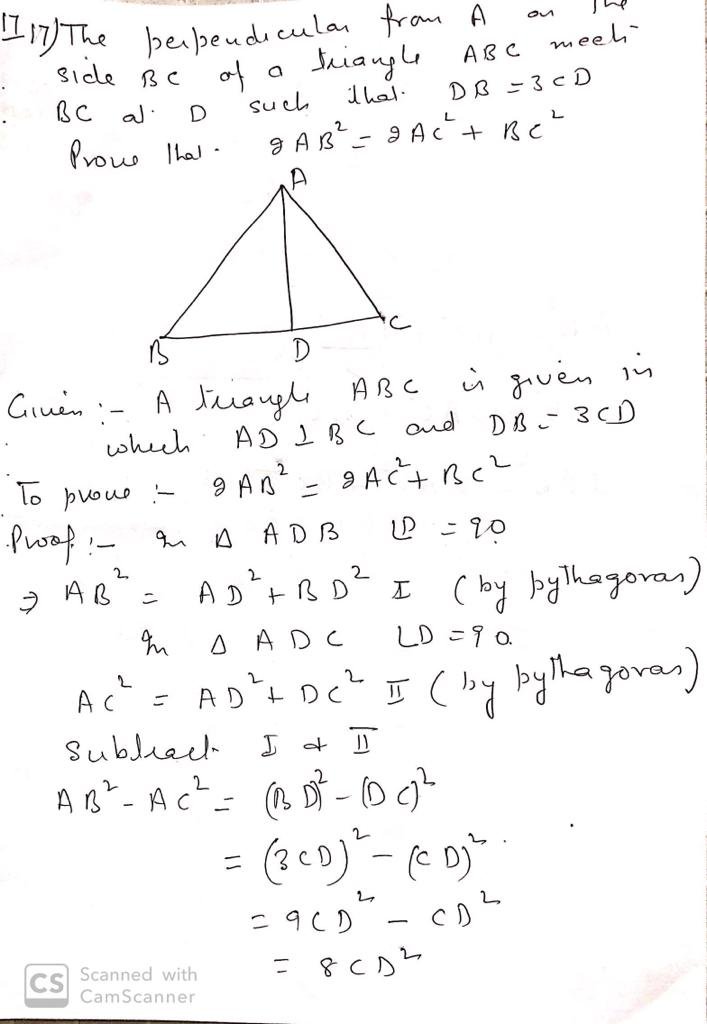 17) The perpendicular from A on the
side BC of a triangle ABC meets
BC at D such that DB = 3CD
Prove that 2AB² = 2AC² + BC²
A
B
D
C
Given :- A triangle ABC is given in
which AD ⊥ BC and DB = 3CD
To prove :- 2AB² = 2AC² + BC²
Proof :- In Δ ADB ∠D = 90
⇒ AB² = AD² + BD² I (by pythagoras)
In Δ ADC ∠D = 90
AC² = AD² + DC² II (by pythagoras)
Subtract I & II
AB² - AC² = (BD)² - (DC)²
= (3CD)² - (CD)²
= 9CD² - CD²
= 8CD²
CS Scanned with
CamScanner